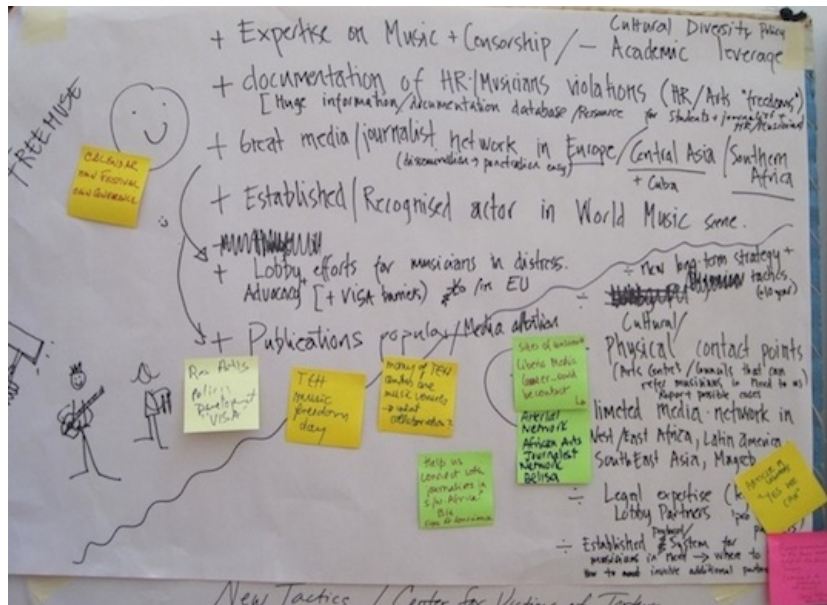 FREEMUSE
+ Expertise on Music + Censorship / — Cultural Diversity Policy
Academic leverage
+ documentation of HR/Musicians violations (HR/Arts "freedoms")
[Huge information/documentation database/Resource for students + journalist
HR/Musicians
+ Great media/journalist network in Europe/Central Asia/Southern Africa
(dissemination + penetration easy)
+ Cuba
+ Established/Recognised actor in World Music scene.
+ Lobby efforts for musicians in distress.
Advocacy [+ VISA barriers) /in EU
+ Publications popular/Media attention
÷ new long-term strategy +
tactics
÷ Cultural/
Physical contact points
(Arts Centres/Councils that can
refer musicians in need to us)
Report possible cases
limeted media-network in
West/East Africa, Latin america
South East Asia, Magreb
÷ Legal expertise
Lobby Partners
÷ Established System for
musicians in need → where to
involve additional
CALENDAR
OWN FESTIVAL
OWN CONFERENCE
Res Artis
Policy
Development
"VISA"
TEH
music
freedom
day
many of TEH
centres are
music venues
→ collaboration?
Liberia Media
be contact
Arterial
Network
African Arts
Journalist
Network
Belisa
Help us
connect with
journalists in
Africa
"YES WE
CAN"
New Tactics / Center for Victims of Torture